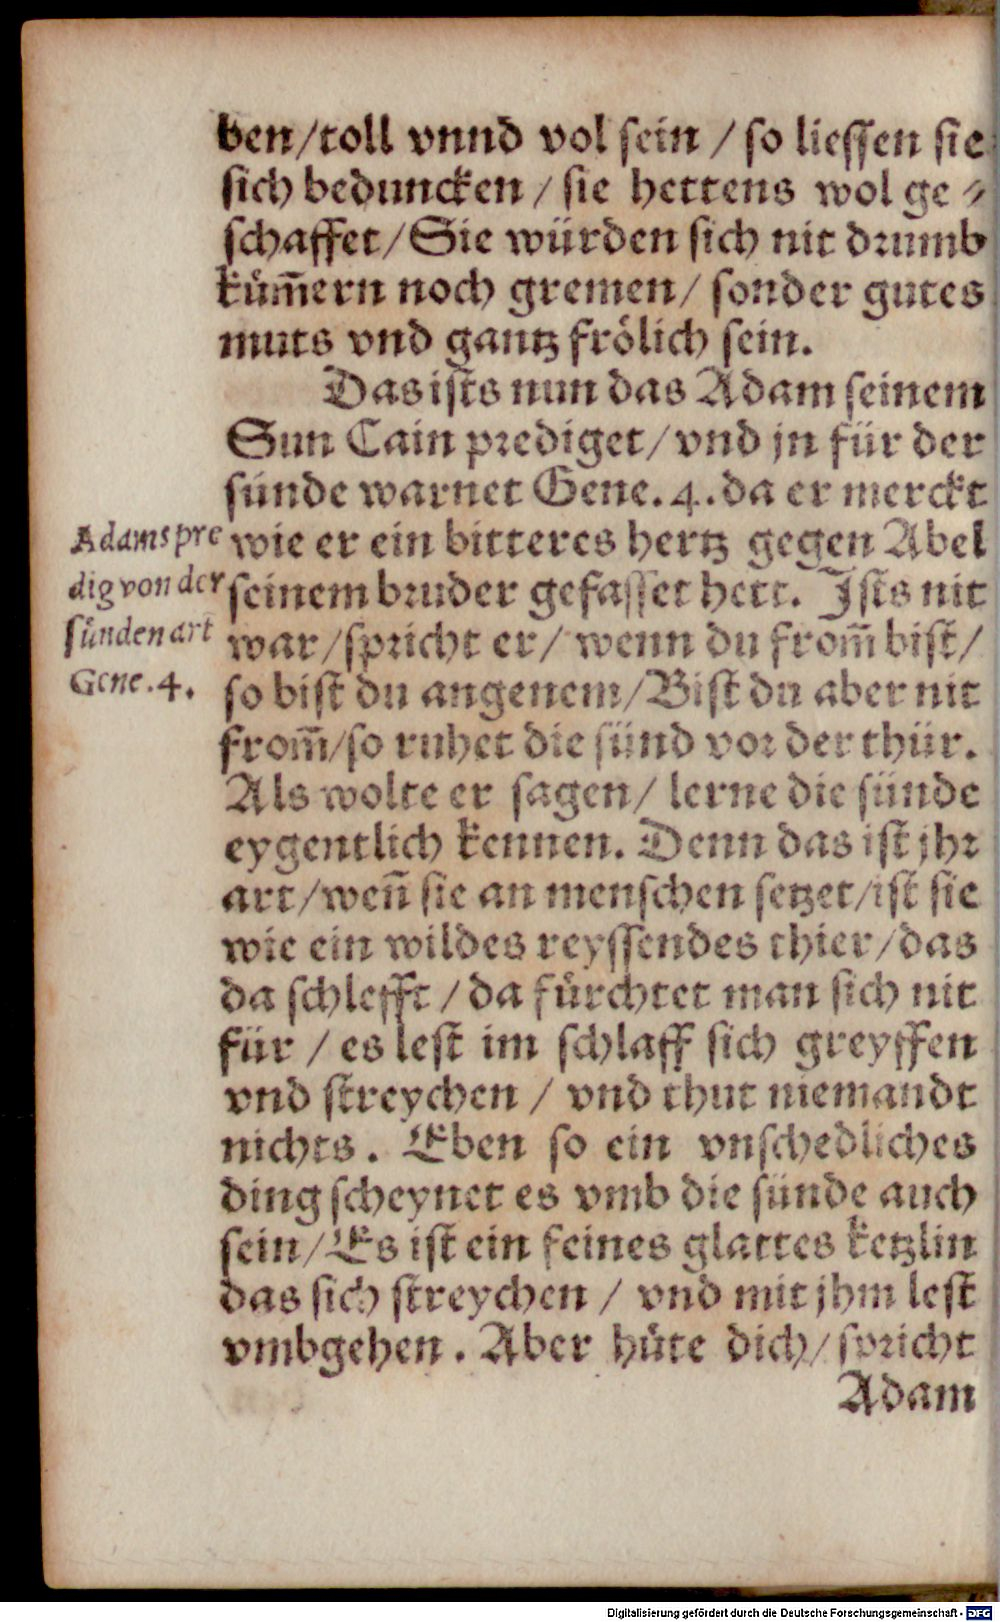 ben/toll vnnd vol sein / so liessen sie
sich beduncken / sie hettens wol ge⸗
schaffet/Sie würden sich nit drumb
küm̃ern noch gremen/ sonder gutes
muts vnd gantz frölich sein.
Das ists nun das Adam seinem
Sun Cain prediget/vnd jn für der
sünde warnet Gene.4.da er merckt
wie er ein bitteres hertz gegen Abel
seinem bruder gefasset hett. Ists nit
war/spricht er/ wenn du from̃ bist/
so bist du angenem/Bist du aber nit
from̃/so ruhet die sünd vor der thür.
Als wolte er sagen/ lerne die sünde
eygentlich kennen. Denn das ist jhr
art/weñ sie an menschen setzet/ist sie
wie ein wildes reyssendes thier/das
da schlefft / da fürchtet man sich nit
für / es lest im schlaff sich greyffen
vnd streychen / vnd thut niemandt
nichts. Eben so ein vnschedliches
ding scheynet es vmb die sünde auch
sein/Es ist ein feines glattes ketzlin
das sich streychen / vnd mit jhm lest
vmbgehen. Aber hüte dich/ spricht
Adam
Adams pre
dig von der
sünden art
Gene.4.
Digitalisierung gefördert durch die Deutsche Forschungsgemeinschaft - DFG